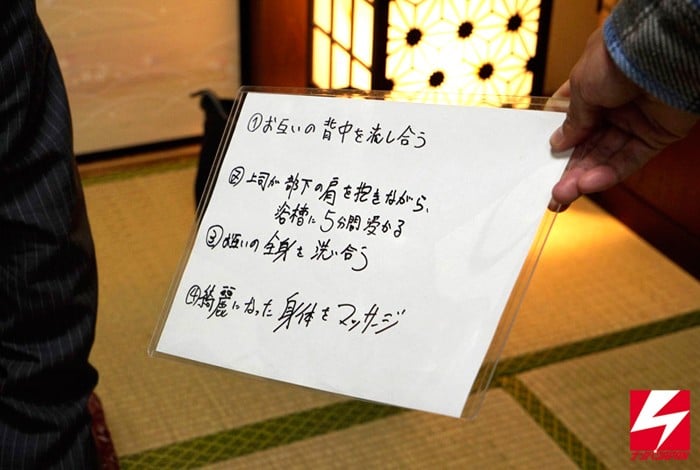 ①お互いの背中を流し合う
②上司が部下の肩を抱きながら、
浴槽に5分間浸かる
③お互いの全身を洗い合う
④綺麗になった身体をマッサージ